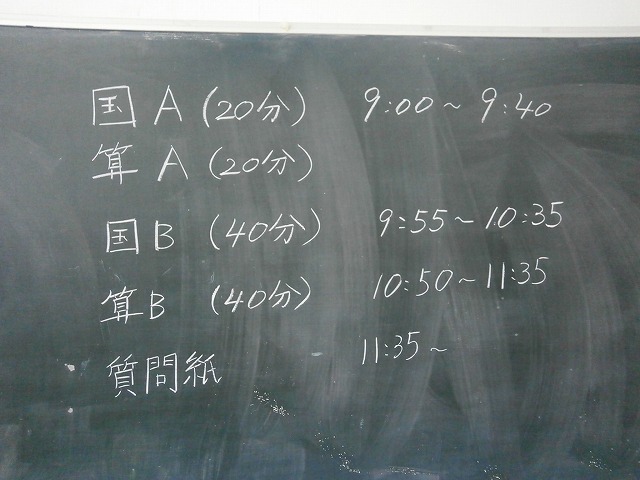 国A(20分) 9:00~9:40
算A(20分)
国B(40分) 9:55~10:35
算B(40分) 10:50~11:35
質問紙 11:35~